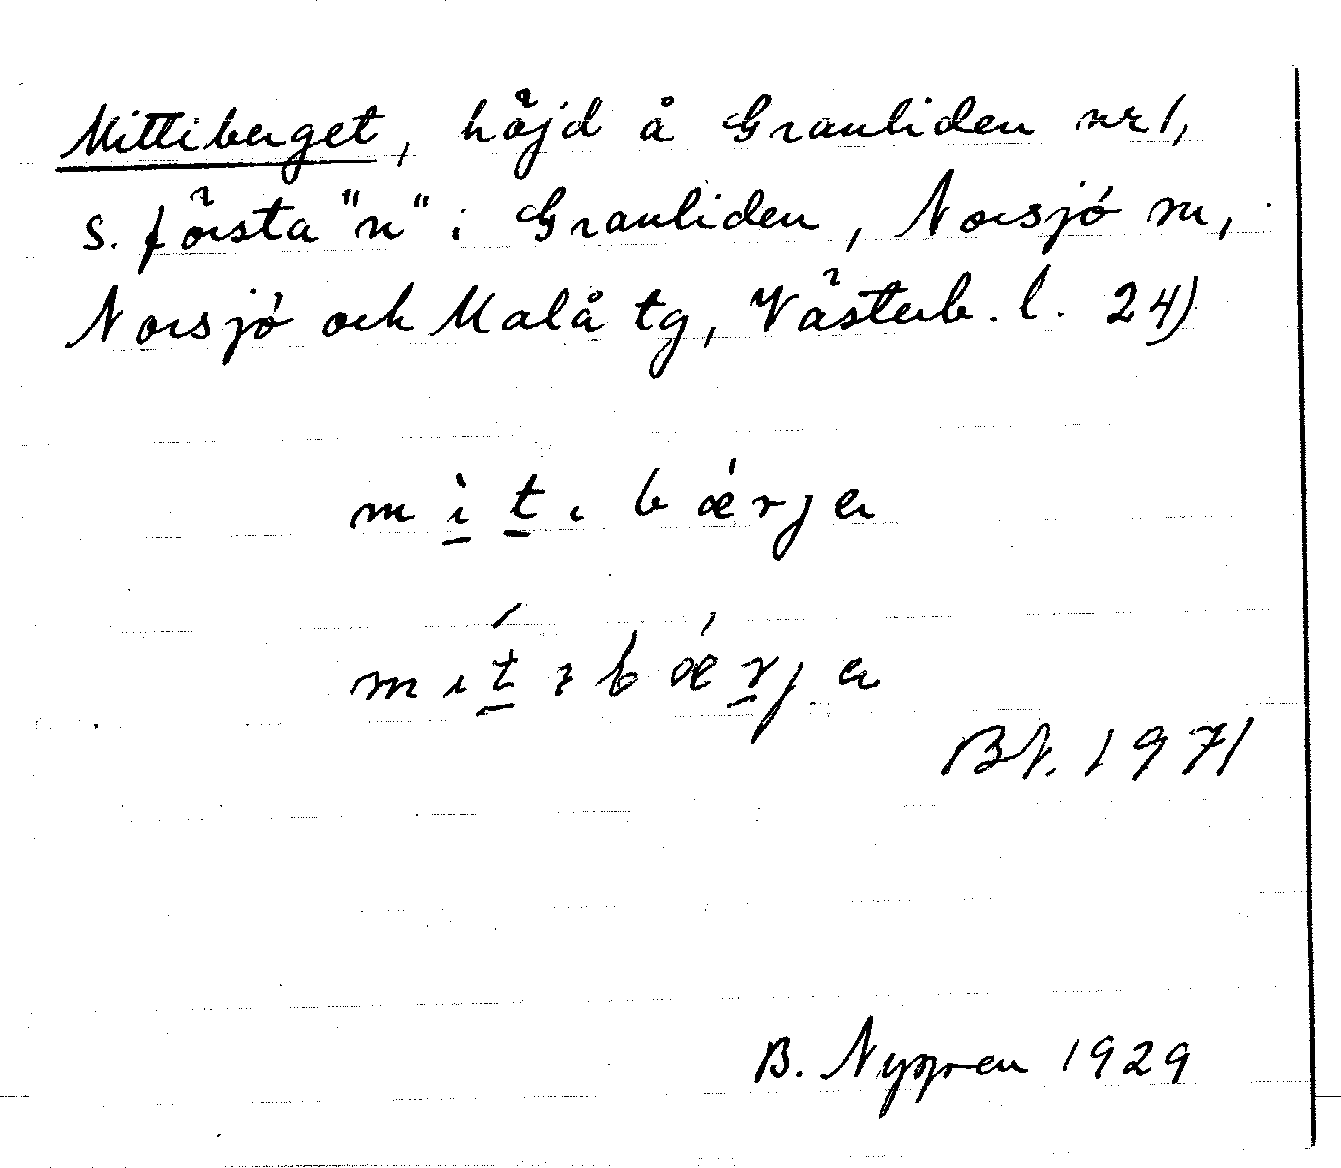 Mittiberget, höjd å Granliden nr 1,
s. första "n" i Granliden, Norsjö sn,
Norsjö och Malå tg, Västerb. l. 24)
mìtıbǽrja
mıt́ıbǽrja
Bt. 1971
B. Nygren 1929